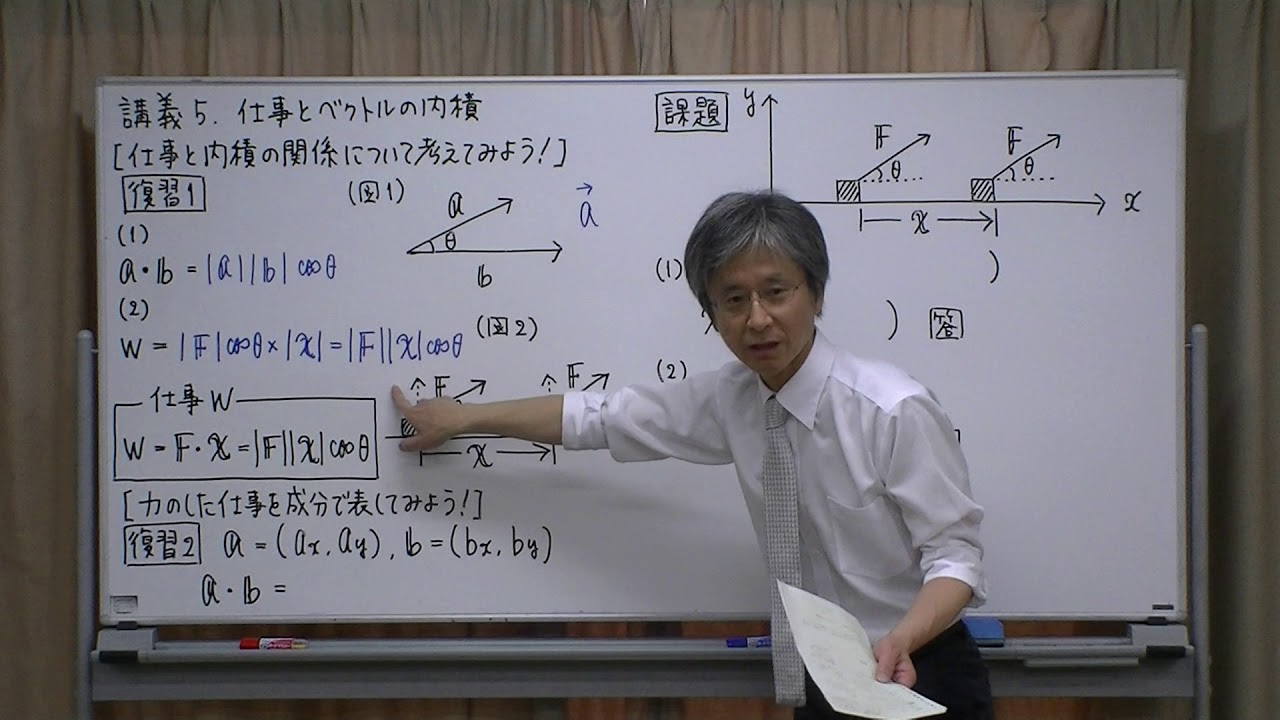 講義5. 仕事とベクトルの内積
[仕事と内積の関係について考えてみよう!]
復習1
(図1)
(1)
a・b = |a||b| cosθ
a
θ
b
a⃗
(2)
W = |F|cosθ×|x| = |F||x|cosθ
(図2)
F
F
x
仕事W
W = F・x = |F||x|cosθ
[力のした仕事を成分で表してみよう!]
復習2 a = (ax, ay), b = (bx, by)
a・b =
課題
y
F
θ
F
θ
x
x
(1) )
) 答
(2)